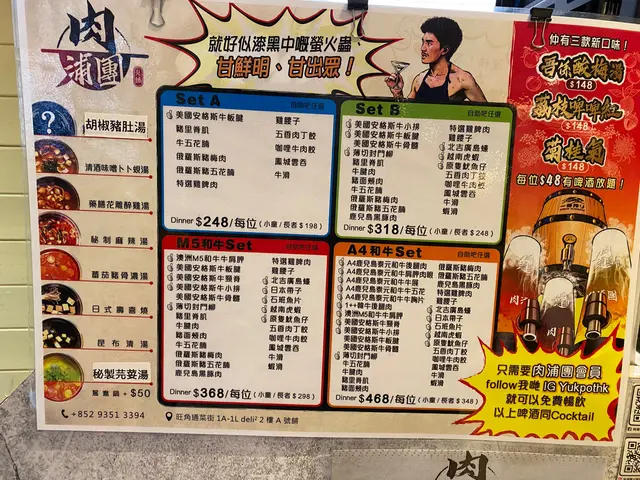 肉
浦團
就好似漆黑中嘅螢火蟲
甘鮮明、甘出眾！
仲有三款新口味！
$148
荔枝啤啤紅
$148
$148
每位$48有啤酒放題！
?
胡椒豬肚湯
清酒味噌卜卜蜆湯
藥膳花雕醉雞湯
秘制麻辣湯
蕃茄豬骨濃湯
日式壽喜燒
昆布清湯
秘製芫荽湯
鴛鴦鍋 + $50
Set A
自助吧任選
美國安格斯牛板腱
豬里脊肌
牛五花腩
俄羅斯豬梅肉
俄羅斯豬五花腩
特選雞脾肉
雞腰子
五香肉丁餃
咖哩牛肉餃
鳳城雲吞
牛滑
Dinner $248/每位 (小童/長者$198)
Set B
自助吧任選
美國安格斯牛小排
美國安格斯牛板腱
美國安格斯牛骨髓
薄切封門柳
豬里脊肌
牛腱肉
豬面頰肉
牛五花腩
俄羅斯豬梅肉
俄羅斯豬五花腩
鹿兒島黑豚肉
特選雞脾肉
雞腰子
北吉廣島蠔
越南虎蝦
原隻魷魚仔
五香肉丁餃
咖哩牛肉餃
鳳城雲吞
牛滑
蝦滑
Dinner $318/每位 (小童/長者$248)
M5和牛Set
自助吧任選
澳洲M5和牛肩胛
美國安格斯牛板腱
美國安格斯牛頸脊
美國安格斯牛小排
美國安格斯牛骨髓
薄切封門柳
豬里脊肌
牛腱肉
牛五花腩
俄羅斯豬梅肉
俄羅斯豬五花腩
鹿兒島黑豚肉
特選雞脾肉
雞腰子
北吉廣島蠔
日本帶子
石斑魚片
越南虎蝦
原隻魷魚仔
五香肉丁餃
咖哩牛肉餃
鳳城雲吞
牛滑
蝦滑
Dinner $368/每位 (小童/長者$298)
A4和牛Set
自助吧任選
A4鹿兒島東元和牛後腿肉
A4鹿兒島東元和牛肩胛肉眼
A4鹿兒島東元和牛展
A4鹿兒島東元和牛五花
A4鹿兒島東元和牛胸片
1++韓牛後腿肉
澳洲M5和牛肩胛
美國安格斯牛小排
美國安格斯牛頸脊
美國安格斯牛板腱
美國安格斯牛骨髓
薄切封門柳
牛五花腩
牛腱肉
豬里脊肌
豬面頰肉
俄羅斯豬梅肉
俄羅斯豬五花腩
鹿兒島黑豚肉
特選雞脾肉
雞腰子
北吉廣島蠔
日本帶子
石斑魚片
越南虎蝦
原隻魷魚仔
五香肉丁餃
咖哩牛肉餃
鳳城雲吞
牛滑
蝦滑
Dinner $468/每位 (小童/長者$348)
只需要肉浦團會員
follow我哋 IG Yukpothk
就可以免費暢飲
以上啤酒同Cocktail
+852 9351 3394
旺角通菜街 1A-1L deli² 2 樓 A 號舖
肉